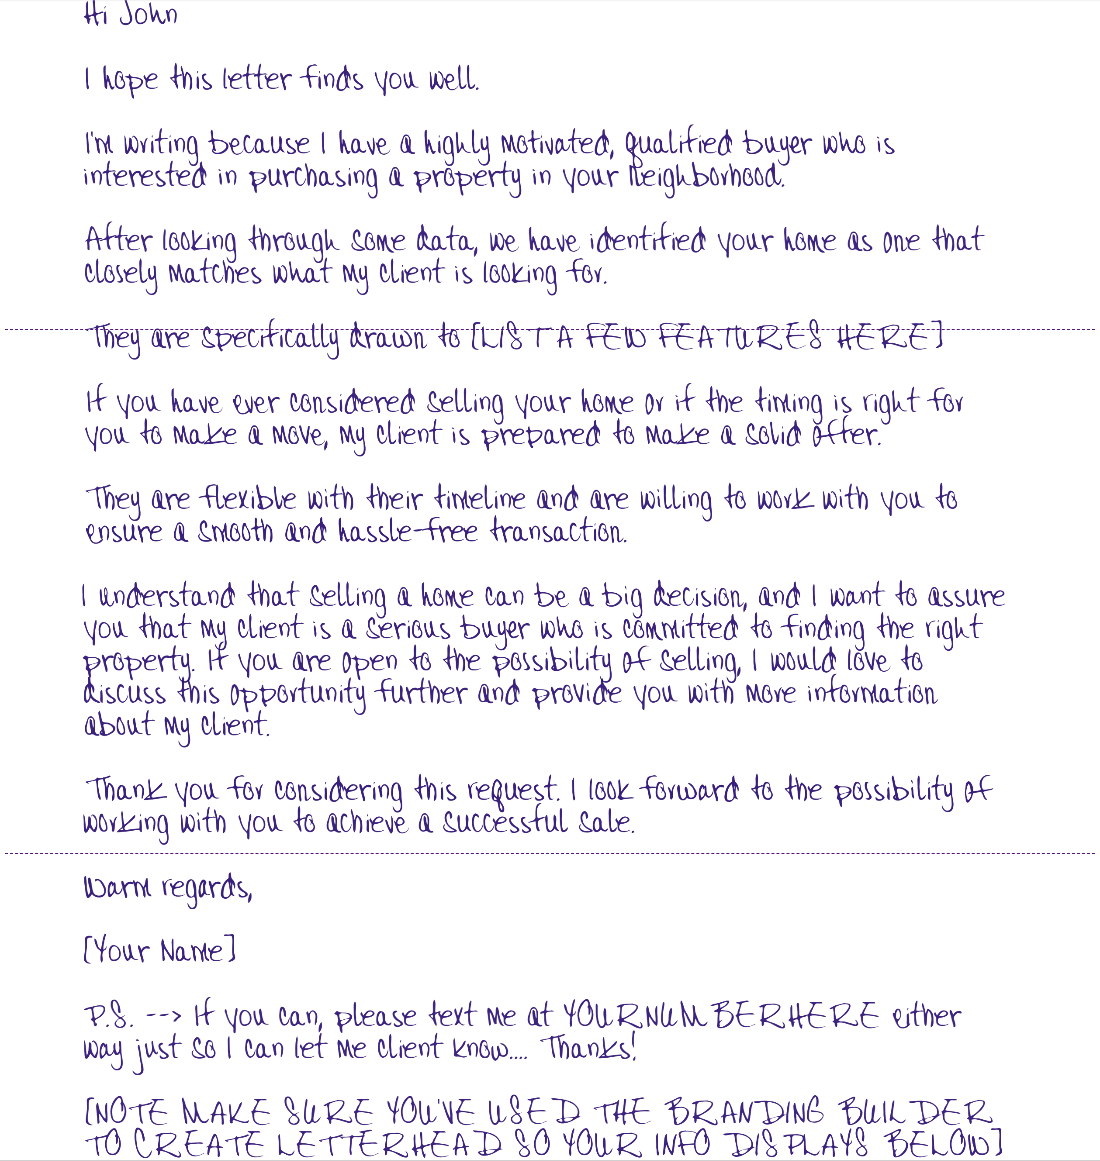 Hi John
I hope this letter finds you well.
I'm writing because I have a highly motivated, qualified buyer who is
interested in purchasing a property in your neighborhood.
After looking through some data, we have identified your home as one that
closely matches what my client is looking for.
They are specifically drawn to [LIST A FEW FEATURES HERE]
If you have ever considered selling your home or if the timing is right for
you to make a move, my client is prepared to make a solid offer.
They are flexible with their timeline and are willing to work with you to
ensure a smooth and hassle-free transaction.
I understand that selling a home can be a big decision, and I want to assure
you that my client is a serious buyer who is committed to finding the right
property. If you are open to the possibility of selling, I would love to
discuss this opportunity further and provide you with more information
about my client.
Thank you for considering this request. I look forward to the possibility of
working with you to achieve a successful sale.
Warm regards,
[Your Name]
P.S. --> If you can, please text me at YOURNUMBERHERE either
way just so I can let me client know.... Thanks!
[NOTE MAKE SURE YOU'VE USED THE BRANDING BUILDER
TO CREATE LETTERHEAD SO YOUR INFO DISPLAYS BELOW]